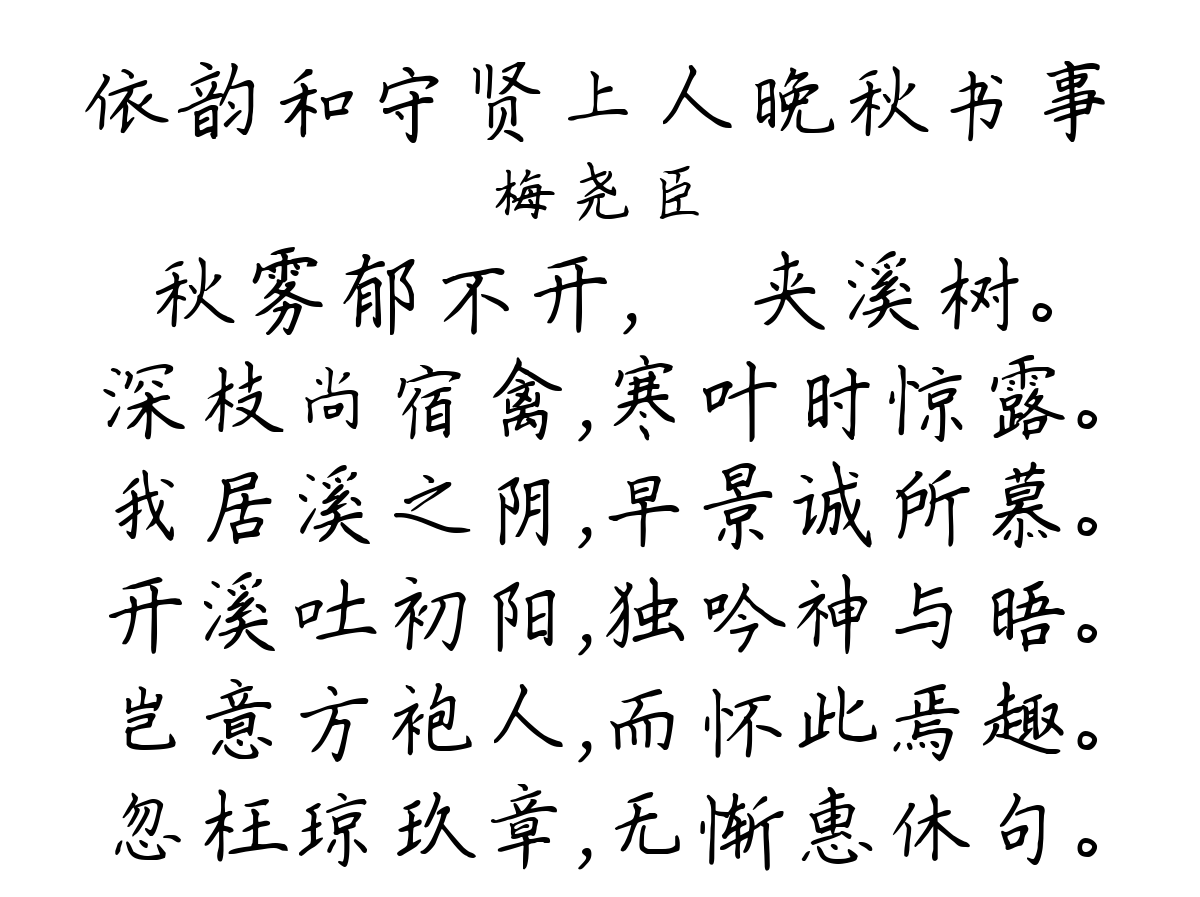 依韵和守贤上人晚秋书事
梅尧臣
秋雾郁不开, 夹溪树。
深枝尚宿禽,寒叶时惊露。
我居溪之阴,早景诚所慕。
开溪吐初阳,独吟神与晤。
岂意方袍人,而怀此焉趣。
忽枉琼玖章,无惭惠休句。